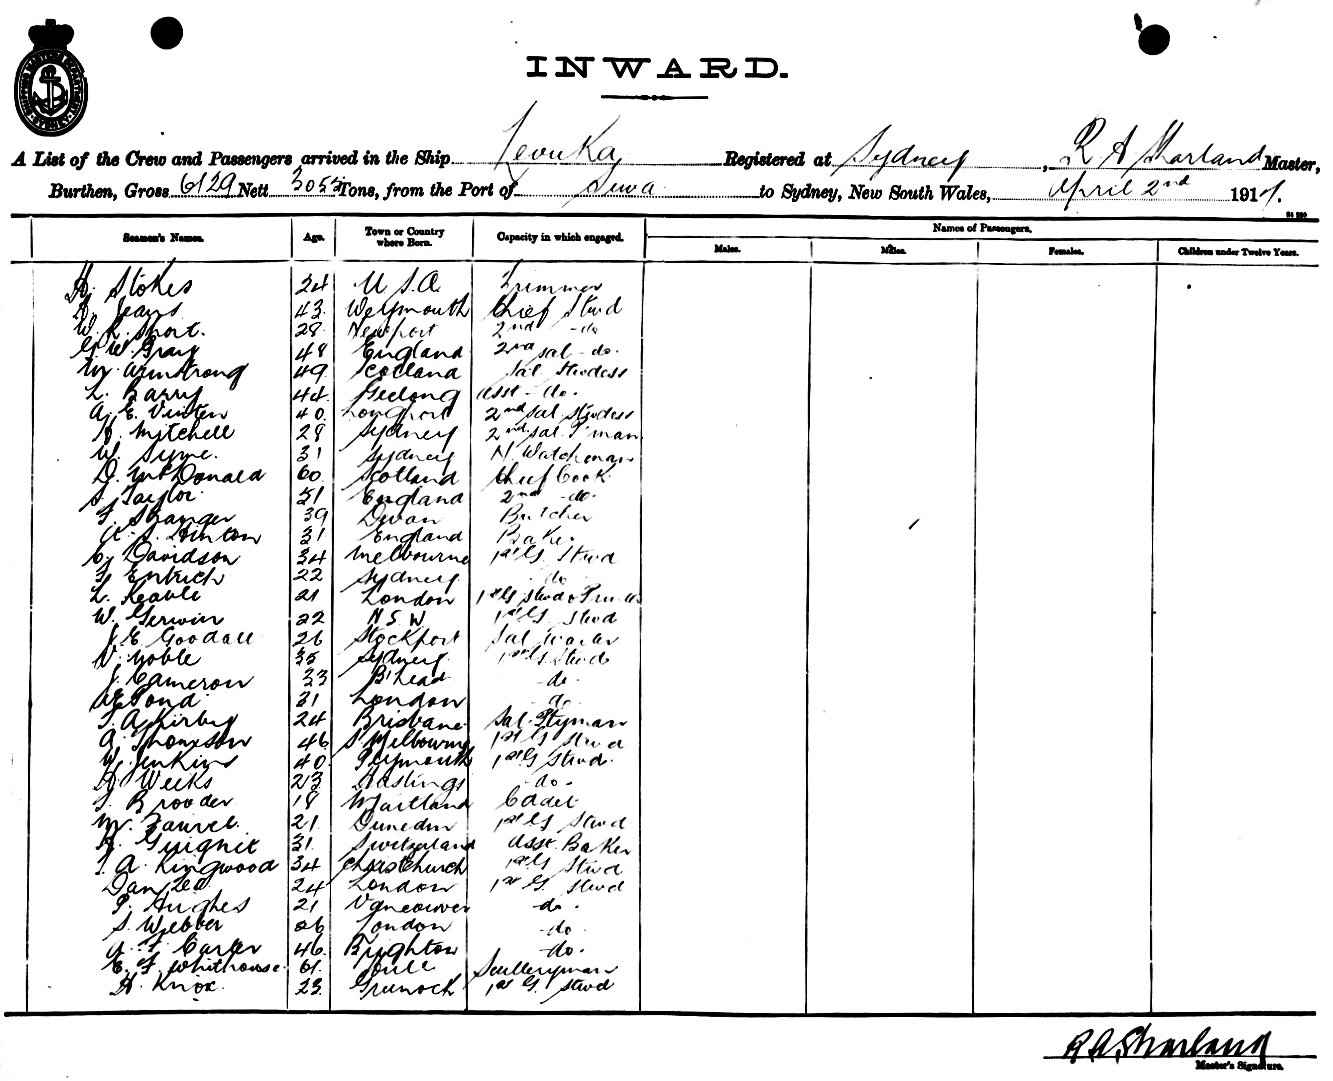 SHIPPING MASTER'S DEPARTMENT SYDNEY
INWARD.
A List of the Crew and Passengers arrived in the Ship Levuka Registered at Sydney, R A Sharland Master,
Burthen, Gross 6129 Nett 3053 Tons, from the Port of Suva to Sydney, New South Wales, April 2nd 1917.
Seamen's Names. Age. Town or Country where Born. Capacity in which engaged. Names of Passengers.
Males. Males. Females. Children under Twelve Years.
H. Stokes 24 U S.A. Trimmer
Jeans 43 Weymouth Chief Stwd
W. R. Short. 28 Newport 2nd -do
G. W. Gray 48 England 2nd Sal -do.
M. Armstrong 49 Scotland Sal Stwdess
L. Barry 44 Geelong Asst -do-
A. E. Vinten 40 Longport 2nd Sal Stwdess
H. Mitchell 28 Sydney 2nd Sal P'man
W. Syme. 31 Sydney N. Watchman
D. McDonald 60 Scotland Chief Cook
S. Taylor 51 England 2nd -do-
F. Stranger 39 Devon Butcher
A. S. Hinton 31 England Baker
C. Davidson 34 Melbourne 1st G. Stwd
F. Entrich 22 Sydney do
L. Keable 21 London 1st G Stwd &
W. Gerwin 22 N S W 1st G. Stwd
J. E. Goodall 26 Stockport Sal Waiter
V. Noble 35 Sydney 1st G Stwd
J. Cameron 33 B'head -do-
W E Pond 31 London do
T. A. Kirby 24 Brisbane Sal. P'tyman
A. Thomson 46 S. Melbourne 1st G Stwd
W. Jenkins 40 Plymouth 1st G Stwd.
H. Weeks 23 Hastings -do-
T. Brooder 18 Maitland Cadet
M. 21. Dunedin 1st G Stwd
R. Guignet 31. Switzerland Asst. Baker
T. A. Kingwood 34 Christchurch 1st G Stwd
Dan Lea 24 London 1st G. Stwd
P. Hughes 21 Vancouver -do-
S. Webber 26 London -do-
A. F. Carter 46. Brighton -do-
E. F. Whithouse. 61. Sculleryman
H. Knox. 23 Grenock 1st G. Stwd
R A Sharland
Master's Signature.